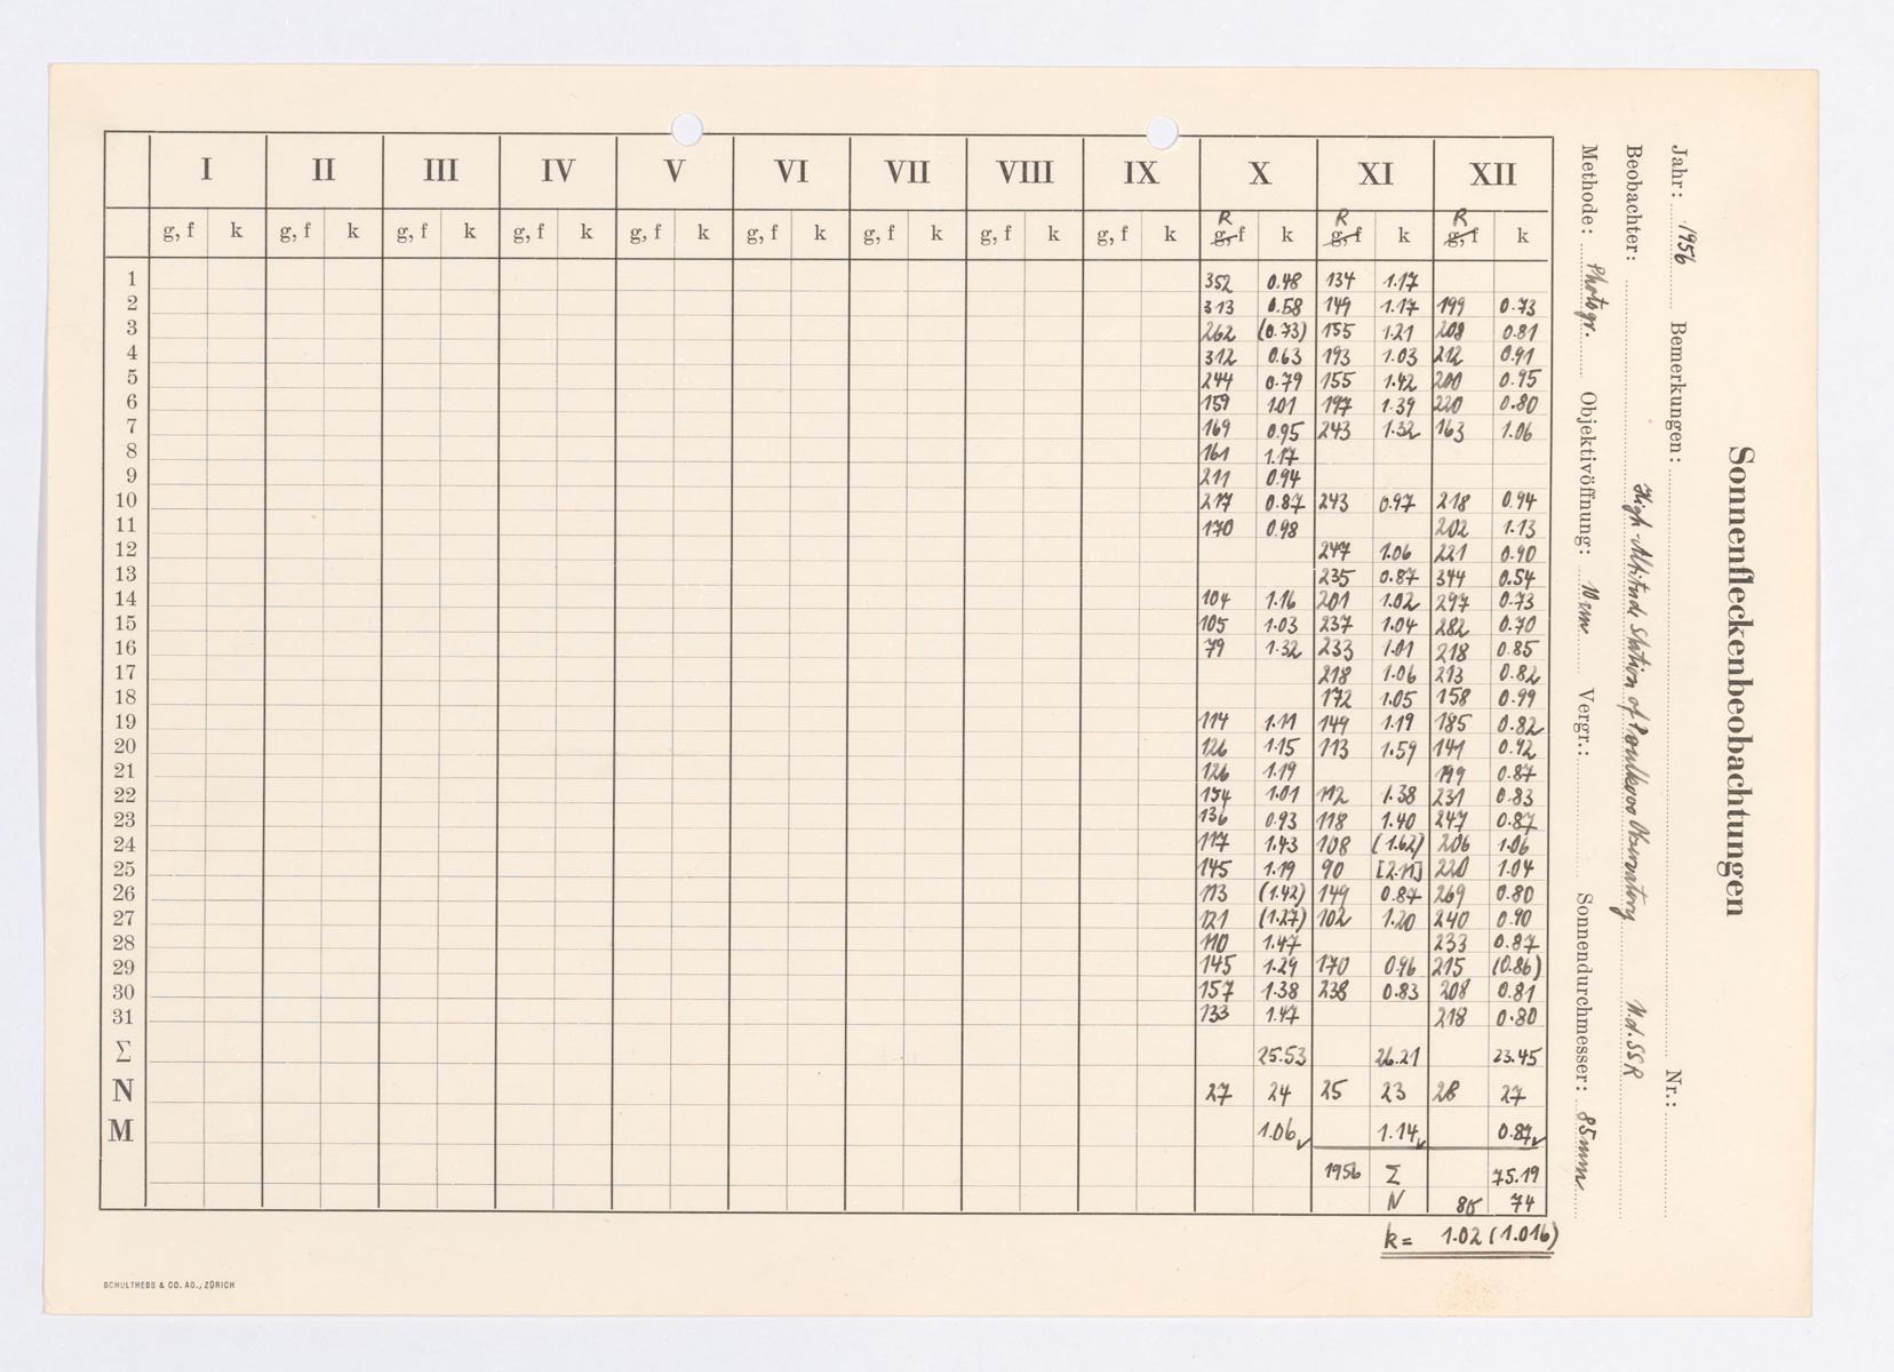 Sonnenfleckenbeobachtungen
Jahr: 1956 Bemerkungen: Nr.:
Beobachter: High-Altitude Station of Poulkovo Observatory U.d.SSR
Methode: Photogr. Objektivöffnung: 10 cm Vergr.: Sonnendurchmesser: 85mm
I II III IV V VI VII VIII IX X XI XII
R R R
g, f k g, f k g, f k g, f k g, f k g, f k g, f k g, f k g, f k g, f k g, f k g, f k
1 352 0.48 134 1.17
2 313 0.58 149 1.17 199 0.73
3 262 (0.73) 155 1.21 208 0.81
4 312 0.63 193 1.03 212 0.91
5 244 0.79 155 1.42 200 0.95
6 159 1.01 197 1.39 220 0.80
7 169 0.95 243 1.32 163 1.06
8 161 1.17
9 211 0.94
10 217 0.87 243 0.97 218 0.94
11 170 0.98 202 1.13
12 247 1.06 221 0.90
13 235 0.87 344 0.54
14 104 1.16 201 1.02 297 0.73
15 105 1.03 237 1.04 282 0.70
16 79 1.32 233 1.01 218 0.85
17 218 1.06 213 0.82
18 172 1.05 158 0.99
19 114 1.11 149 1.19 185 0.82
20 126 1.15 113 1.59 141 0.92
21 126 1.19 199 0.87
22 154 1.01 112 1.38 231 0.83
23 136 0.93 118 1.40 247 0.87
24 117 1.43 108 (1.62) 206 1.06
25 145 1.19 90 [2.11] 220 1.04
26 113 (1.42) 149 0.87 269 0.80
27 121 (1.27) 102 1.20 240 0.90
28 110 1.47 233 0.87
29 145 1.29 170 0.96 215 (0.86)
30 157 1.38 238 0.83 208 0.81
31 133 1.47 218 0.80
Σ 25.53 26.21 23.45
N 27 24 25 23 28 27
M 1.06 1.14 0.87
1956 Σ 75.19
N 80 74
k = 1.02 (1.016)
SCHULTHESS & CO. AG., ZÜRICH